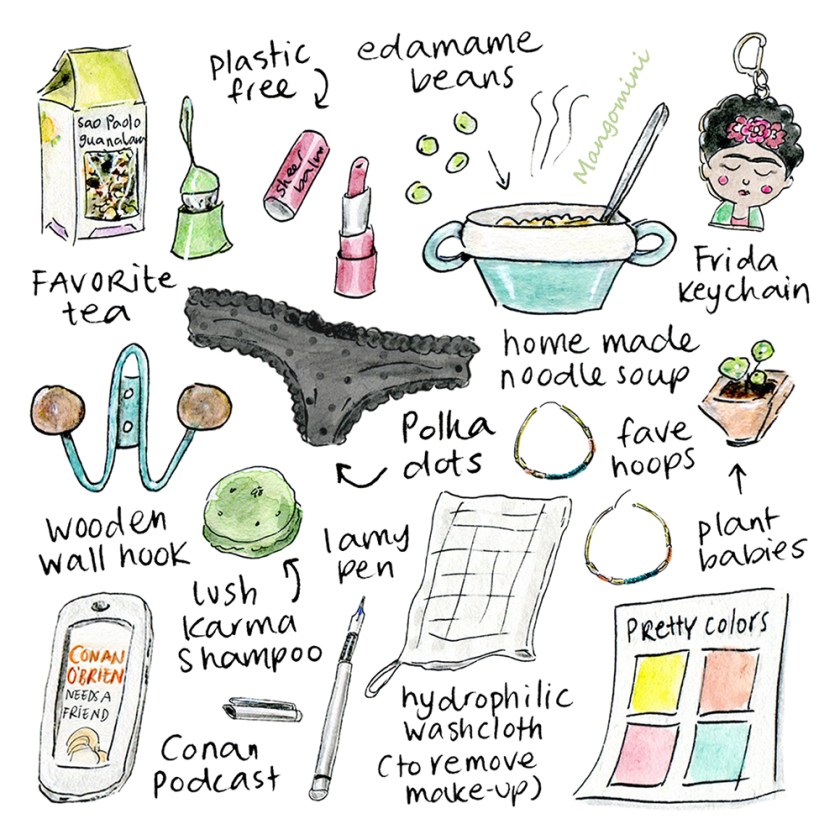 plastic
free
edamame
beans
Mangomini
sao Paolo
FAVORITE
tea
sheer
balm
Frida
keychain
home made
noodle soup
Polka
dots
fave
hoops
plant
babies
wooden
wall hook
lush
Karma
shampoo
lamy
pen
hydrophilic
washcloth
(to remove
make-up)
Pretty colors
CONAN
O'BRIEN
NEEDS A
FRIEND
Conan
Podcast